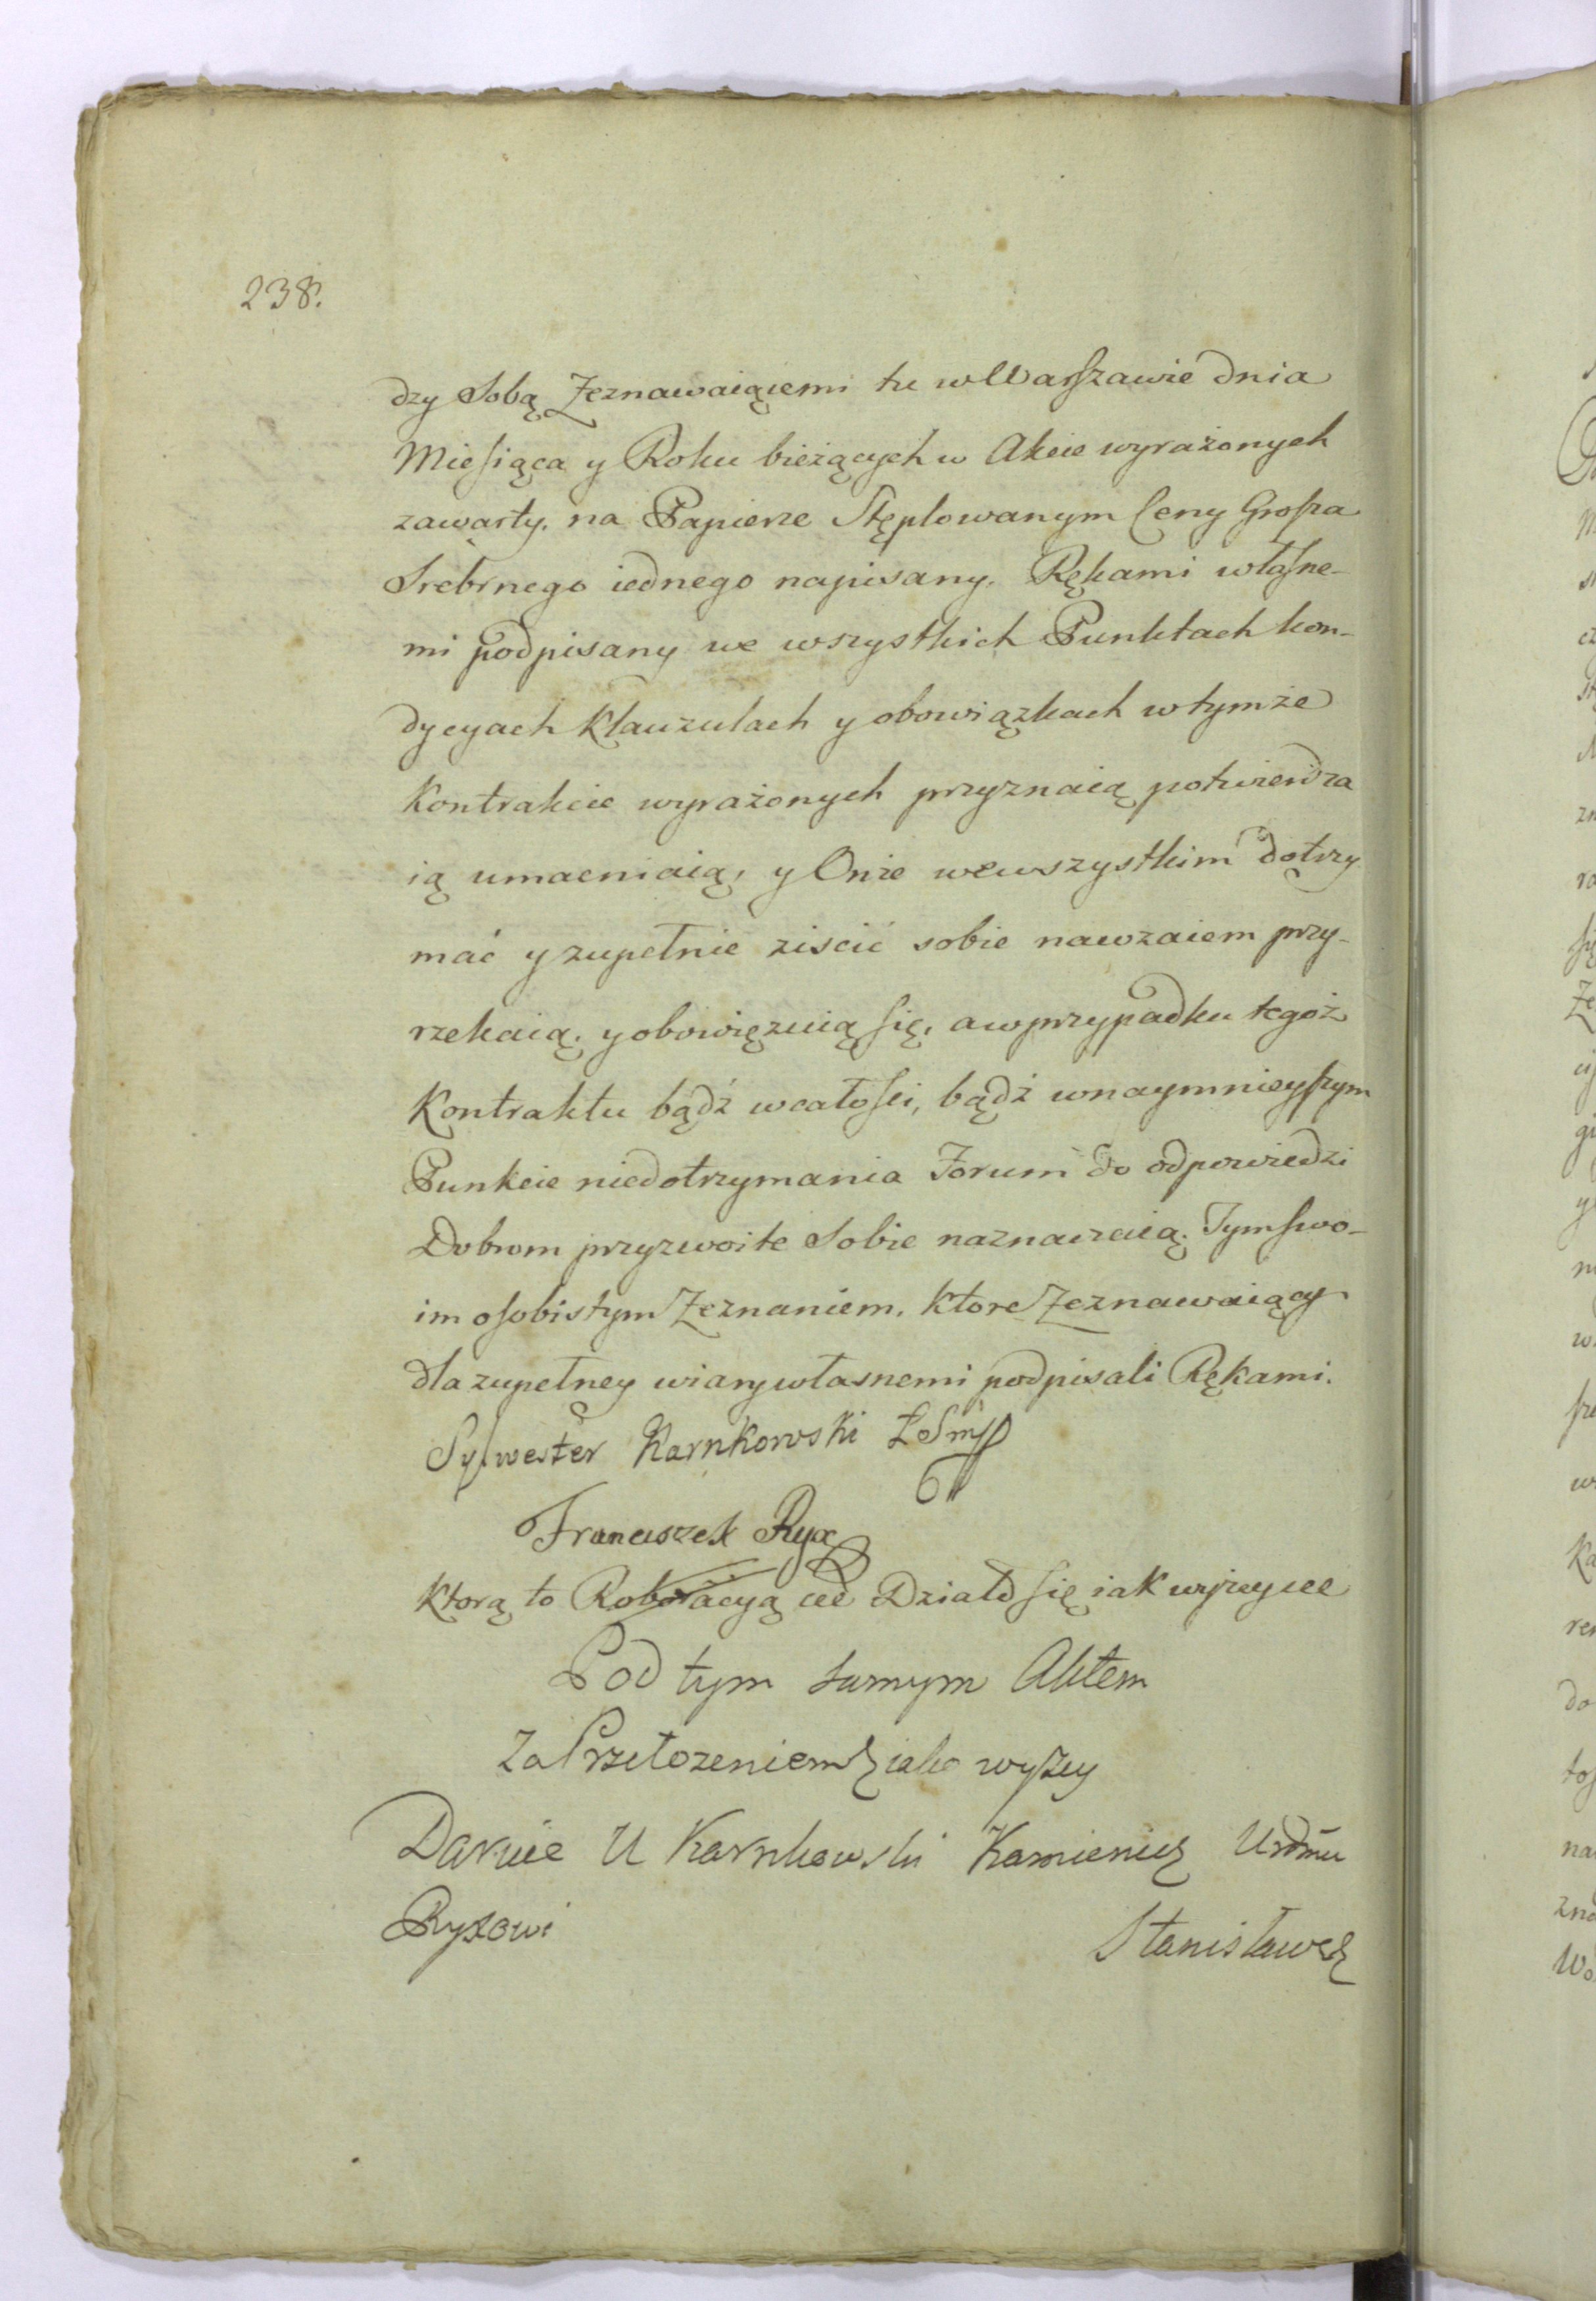 238.
dzy Sobą Zeznawaiąiemi tu w Warſzawie dnia
Mieſiąca y Roku bieżących w Akcie wyrażonych
zawarty. na Papierze Stęplowanym Ceny Groſza
Srebrnego iednego napisany. Rękami właſne-
mi podpisany we wszystkich Punktach kon-
dycyach Klauzulach y obowiązkach w tymże
Kontrakcie wyrażonych przyznaią potwierdza
ią umacniaią, y Onże we wszystkim dotrzy
mać y zupełnie ziscić sobie nawzaiem przy-
rzekaią, y obowięzuią ſię, a w przypadku tegoż
Kontraktu bądź w całoſci, bądź w naymnieyſzym
Punkcie niedotrzymania Forum do odpowiedzi
Dobrom przyzwoite Sobie naznaczaią. Tym ſwo-
im oſobistym Zeznaniem. Ktore Zeznawaiący
dla zupełney wiary własnemi podpisali Rękami.
Sylwester Karnkowski
Franciszek Ryx
Ktorą to Roboracyą Działo ſię iak wyżey
Pod tym samym Aktem
Za Przełozeniem iako wyżey
Daruie U Karnkowski Kamienicę
Ryxowi
Stanisławę